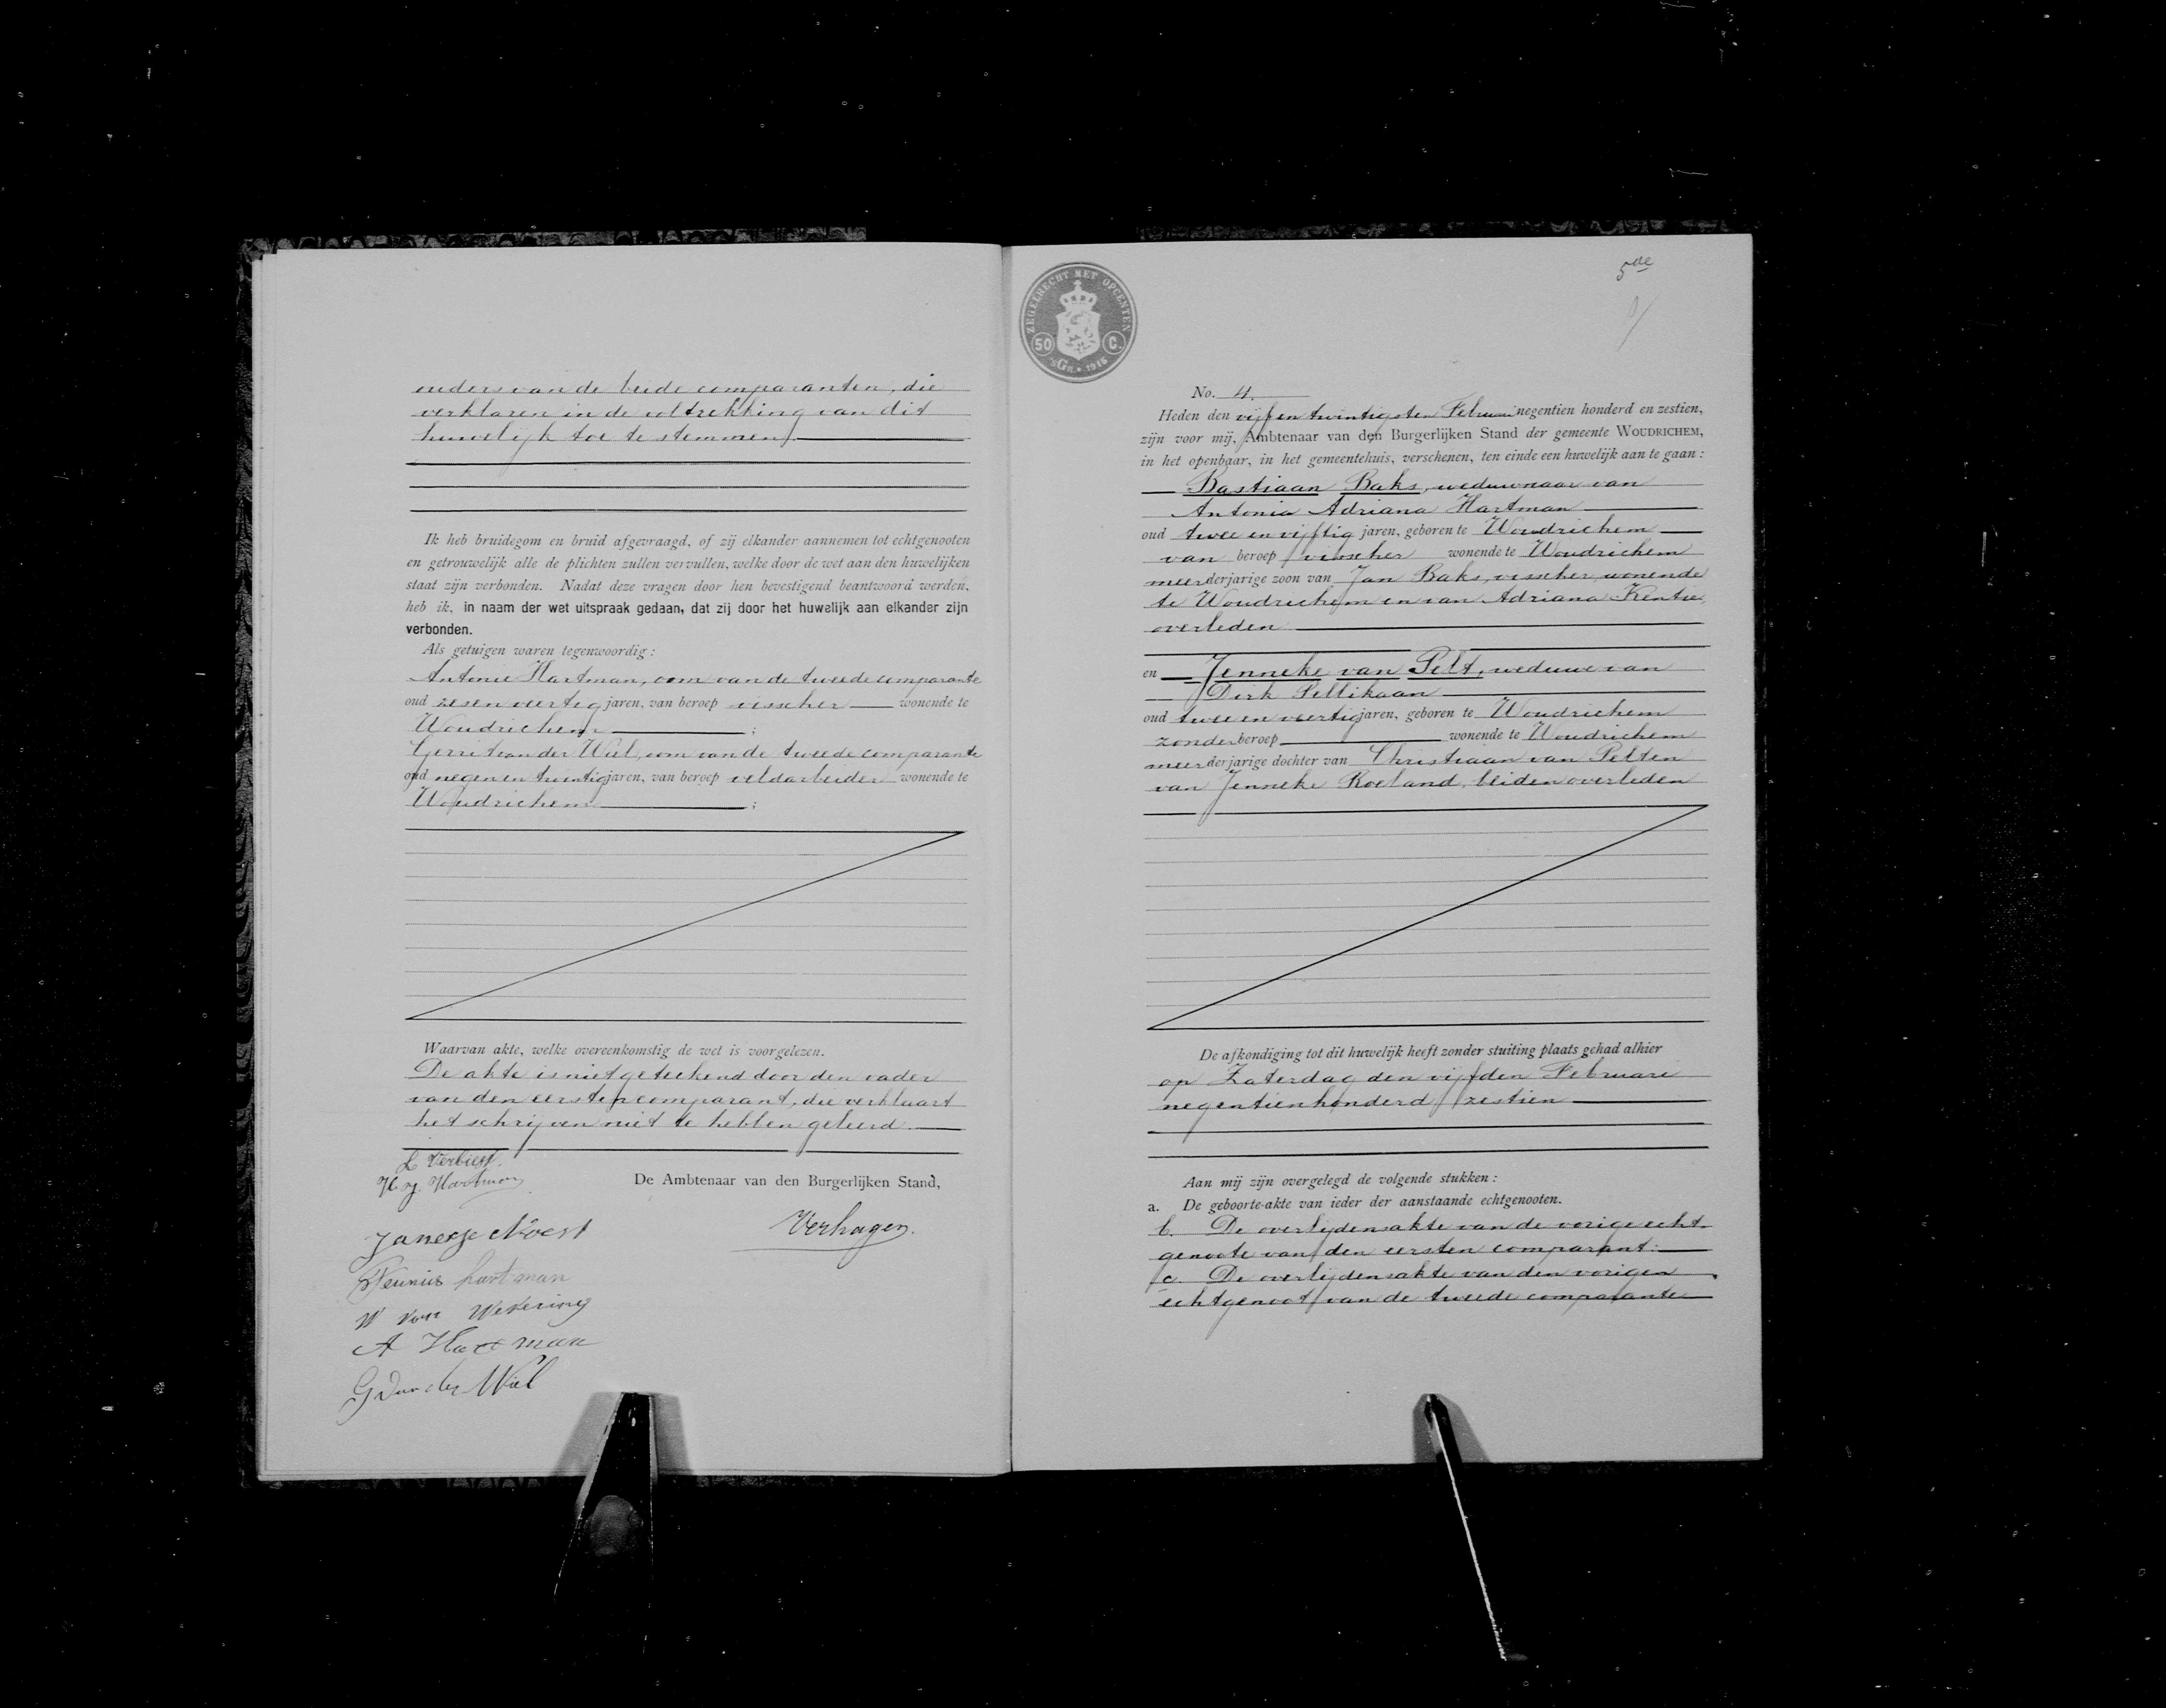 ouders van de beide comparanten, die
verklaren in de voltrekking van dit
huwelijk toe te stemmen.
Ik heb bruidegom en bruid afgevraagd, of zij elkander aannemen tot echtgenooten
en getrouwelijk alle de plichten zullen vervullen, welke door de wet aan den huwelijken
staat zijn verbonden. Nadat deze vragen door hen bevestigend beantwoord werden,
heb ik, in naam der wet uitspraak gedaan, dat zij door het huwelijk aan elkander zijn
verbonden.
Als getuigen waren tegenwoordig:
Antonie Hartman, oom van de tweede comparante
oud zesenveertig jaren, van beroep visscher wonende te
Woudrichem;
Gerrit van der Wiel, oom van de tweede comparante
oud negenentwintig jaren, van beroep veldarbeider wonende te
Woudrichem;
Waarvan akte, welke overeenkomstig de wet is voorgelezen.
De akte is niet geteekend door den vader
van den eersten comparant, die verklaart
het schrijven niet te hebben geleerd.
L Verbiest.
H. J. Hartman
De Ambtenaar van den Burgerlijken Stand,
Verhagen.
Teunis hartman
W van Wetering
A Hartman
G van der Wiel
ZEGELRECHT MET OPCENTEN
50 C.
'sGR. 1916
5de
No. 4.
Heden den vijf en twintigsten Februari negentien honderd en zestien,
zijn voor mij, Ambtenaar van den Burgerlijken Stand der gemeente WOUDRICHEM,
in het openbaar, in het gemeentehuis, verschenen, ten einde een huwelijk aan te gaan:
Bastiaan Baks, weduwnaar van
Antonia Adriana Hartman
oud twee en vijftig jaren, geboren te Woudrichem
van beroep visscher wonende te Woudrichem
meerderjarige zoon van Jan Baks, visscher, wonende
te Woudrichem en van Adriana Kentie,
overleden
en Jenneke van Pelt, weduwe van
Dirk Pellikaan
oud twee en veertig jaren, geboren te Woudrichem
zonder beroep wonende te Woudrichem
meerderjarige dochter van Christiaan van Pelt en
van Jenneke Roeland, beiden overleden
De afkondiging tot dit huwelijk heeft zonder stuiting plaats gehad alhier
op Zaterdag den vijfden Februari
negentienhonderd zestien
Aan mij zijn overgelegd de volgende stukken:
a. De geboorte-akte van ieder der aanstaande echtgenooten.
b. De overlijdensakte van de vorige echt-
genoote van den eersten comparant.
c. De overlijdensakte van den vorigen
echtgenoot van de tweede comparante